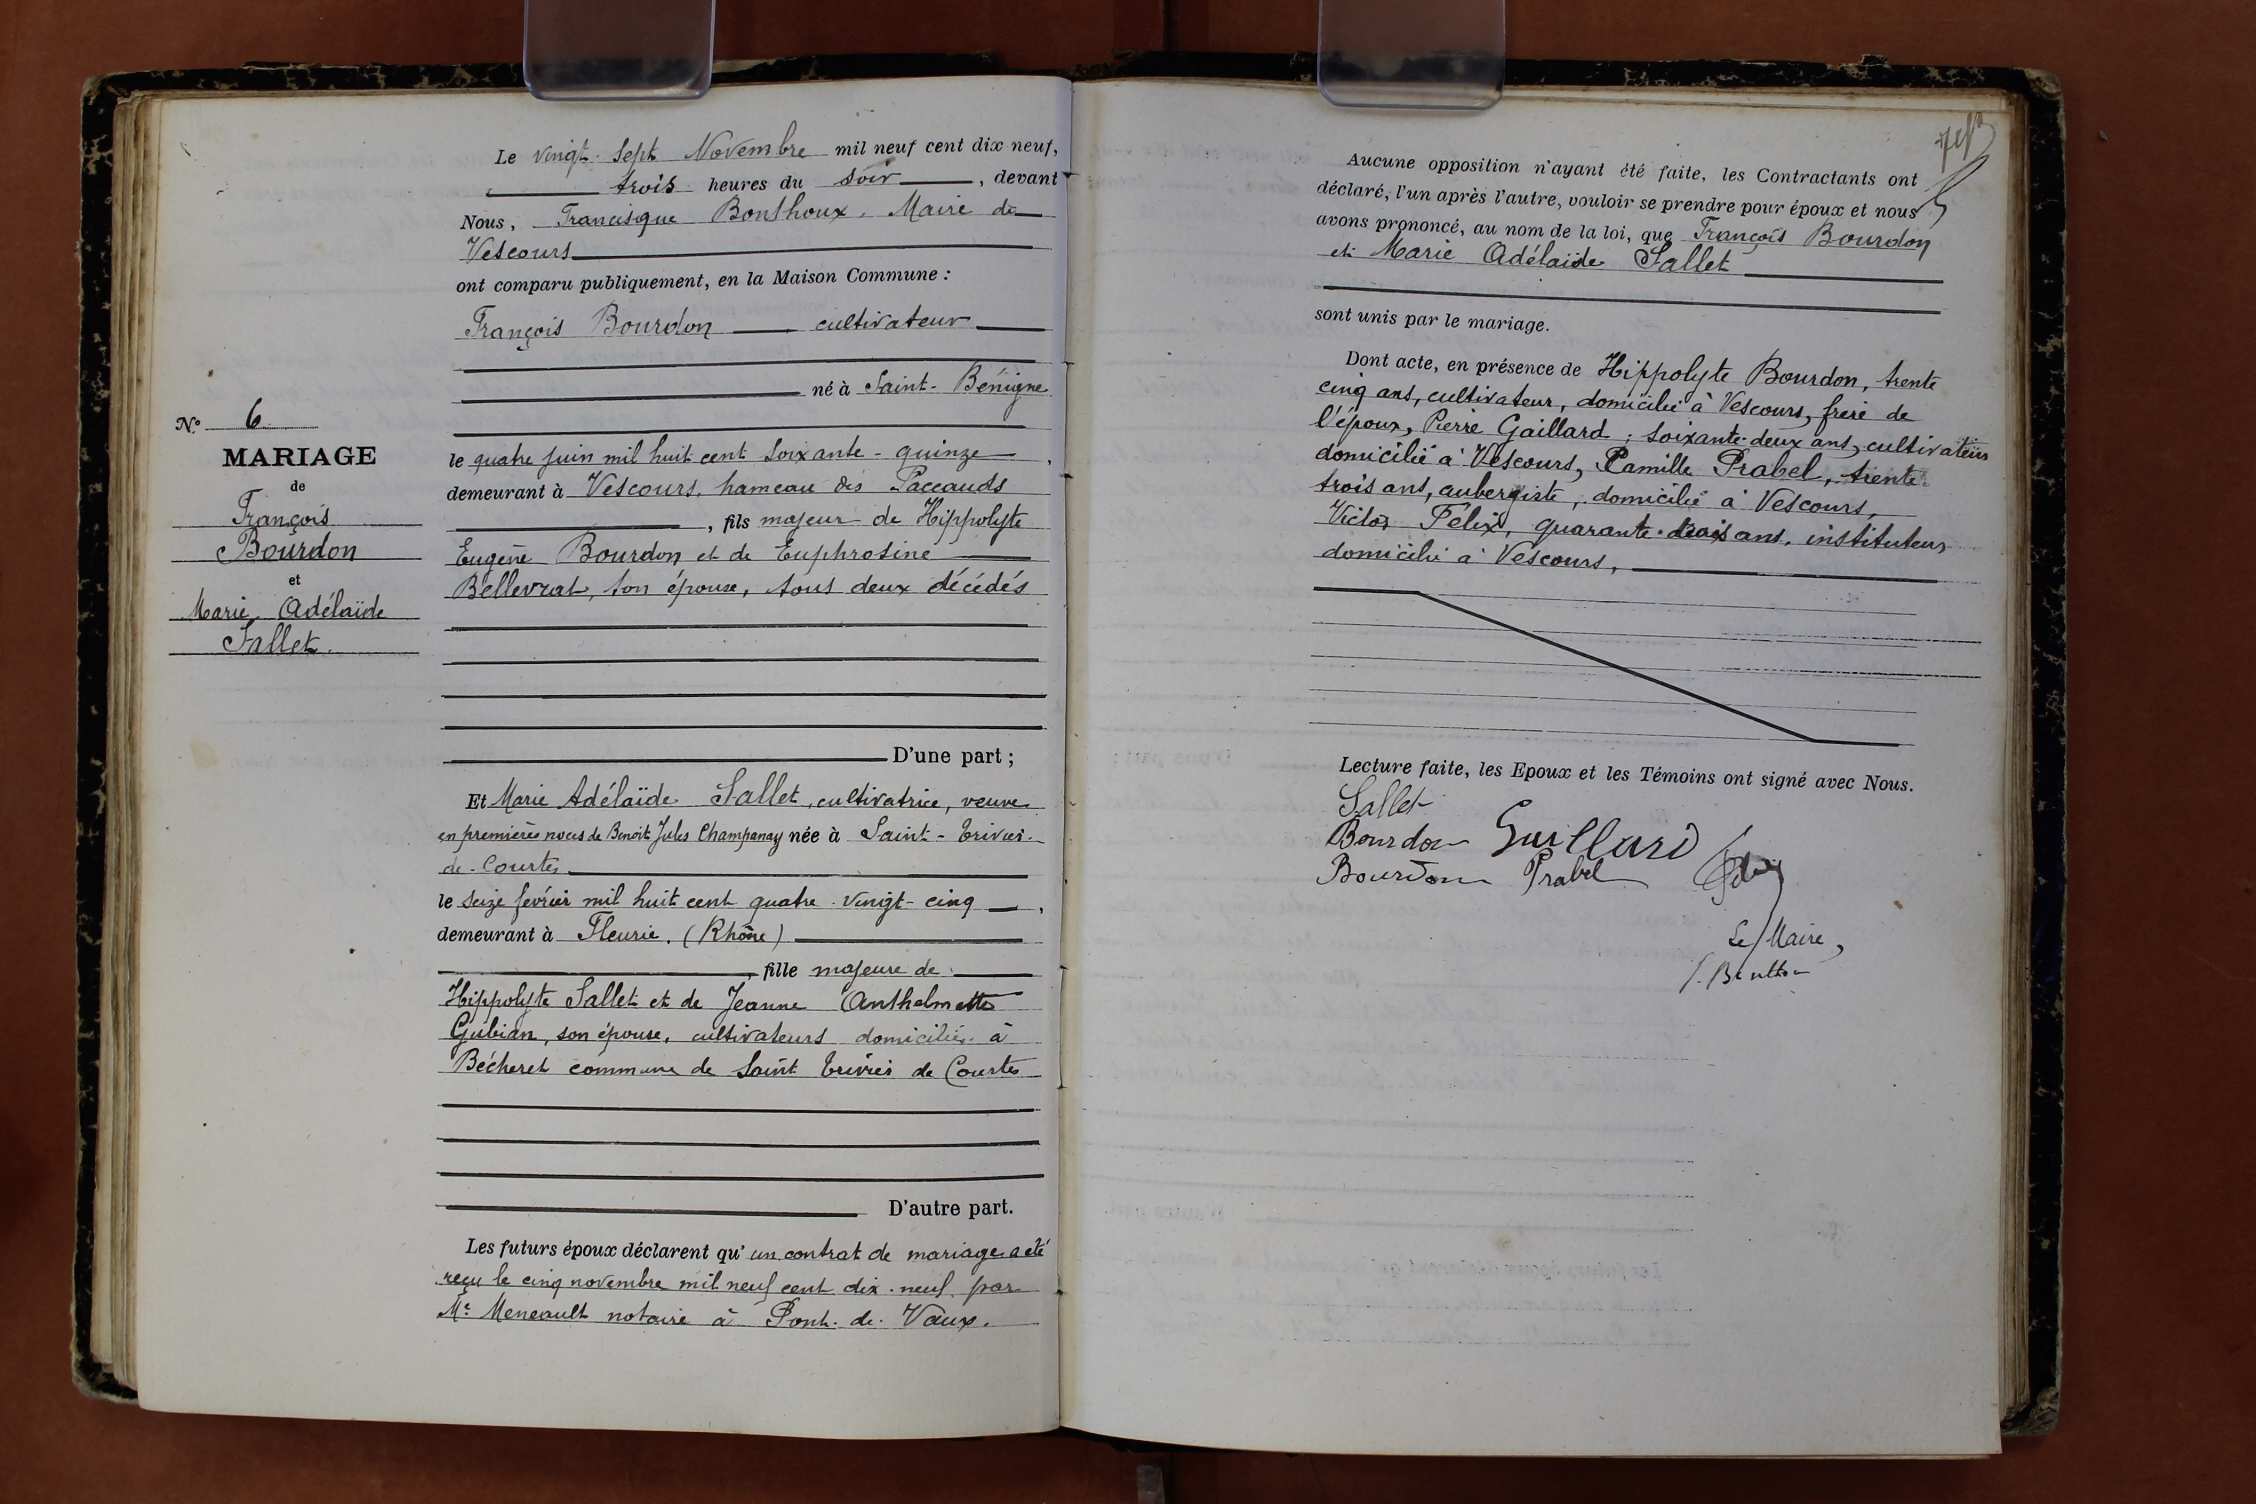 N° 6
MARIAGE
de
François
Bourdon
et
Marie Adélaïde
Sallet.
Le vingt-sept Novembre mil neuf cent dix neuf,
trois heures du soir, devant
Nous, Francisque Bonthoux, Maire de
Vescours
ont comparu publiquement, en la Maison Commune :
François Bourdon cultivateur
né à Saint-Bénigne
le quatre juin mil huit cent soixante-quinze,
demeurant à Vescours, hameau des Paccauds
, fils majeur de Hippolyte
Eugène Bourdon et de Euphrosine
Bellevrat, son épouse, tous deux décédés
D'une part ;
Et Marie Adélaïde Sallet, cultivatrice, veuve
en premières noces de Benoît Jules Champanay née à Saint-Trivier-
de-Courtes
le seize février mil huit cent quatre-vingt-cinq,
demeurant à Fleurie. (Rhône)
, fille majeure de
Hippolyte Sallet et de Jeanne Anthelmette
Gubian, son épouse, cultivateurs domiciliés à
Bécheret commune de Saint Trivier de Courtes
D'autre part.
Les futurs époux déclarent qu'un contrat de mariage a été
reçu le cinq novembre mil neuf cent dix-neuf par
Me Meneault notaire à Pont-de-Vaux.
Aucune opposition n'ayant été faite, les Contractants ont
déclaré, l'un après l'autre, vouloir se prendre pour époux et nous
avons prononcé, au nom de la loi, que François Bourdon
et Marie Adélaïde Sallet
sont unis par le mariage.
Dont acte, en présence de Hippolyte Bourdon, trente
cinq ans, cultivateur, domicilié à Vescours, frère de
l'époux, Pierre Gaillard, soixante-deux ans, cultivateur
domicilié à Vescours, Camille Prabel, trente
trois ans, aubergiste, domicilié à Vescours,
Victor Félix, quarante-trois ans, instituteur
domicilié à Vescours,
Lecture faite, les Epoux et les Témoins ont signé avec Nous.
Sallet
Bourdon Guillard
Bourdon Prabel
Le Maire,